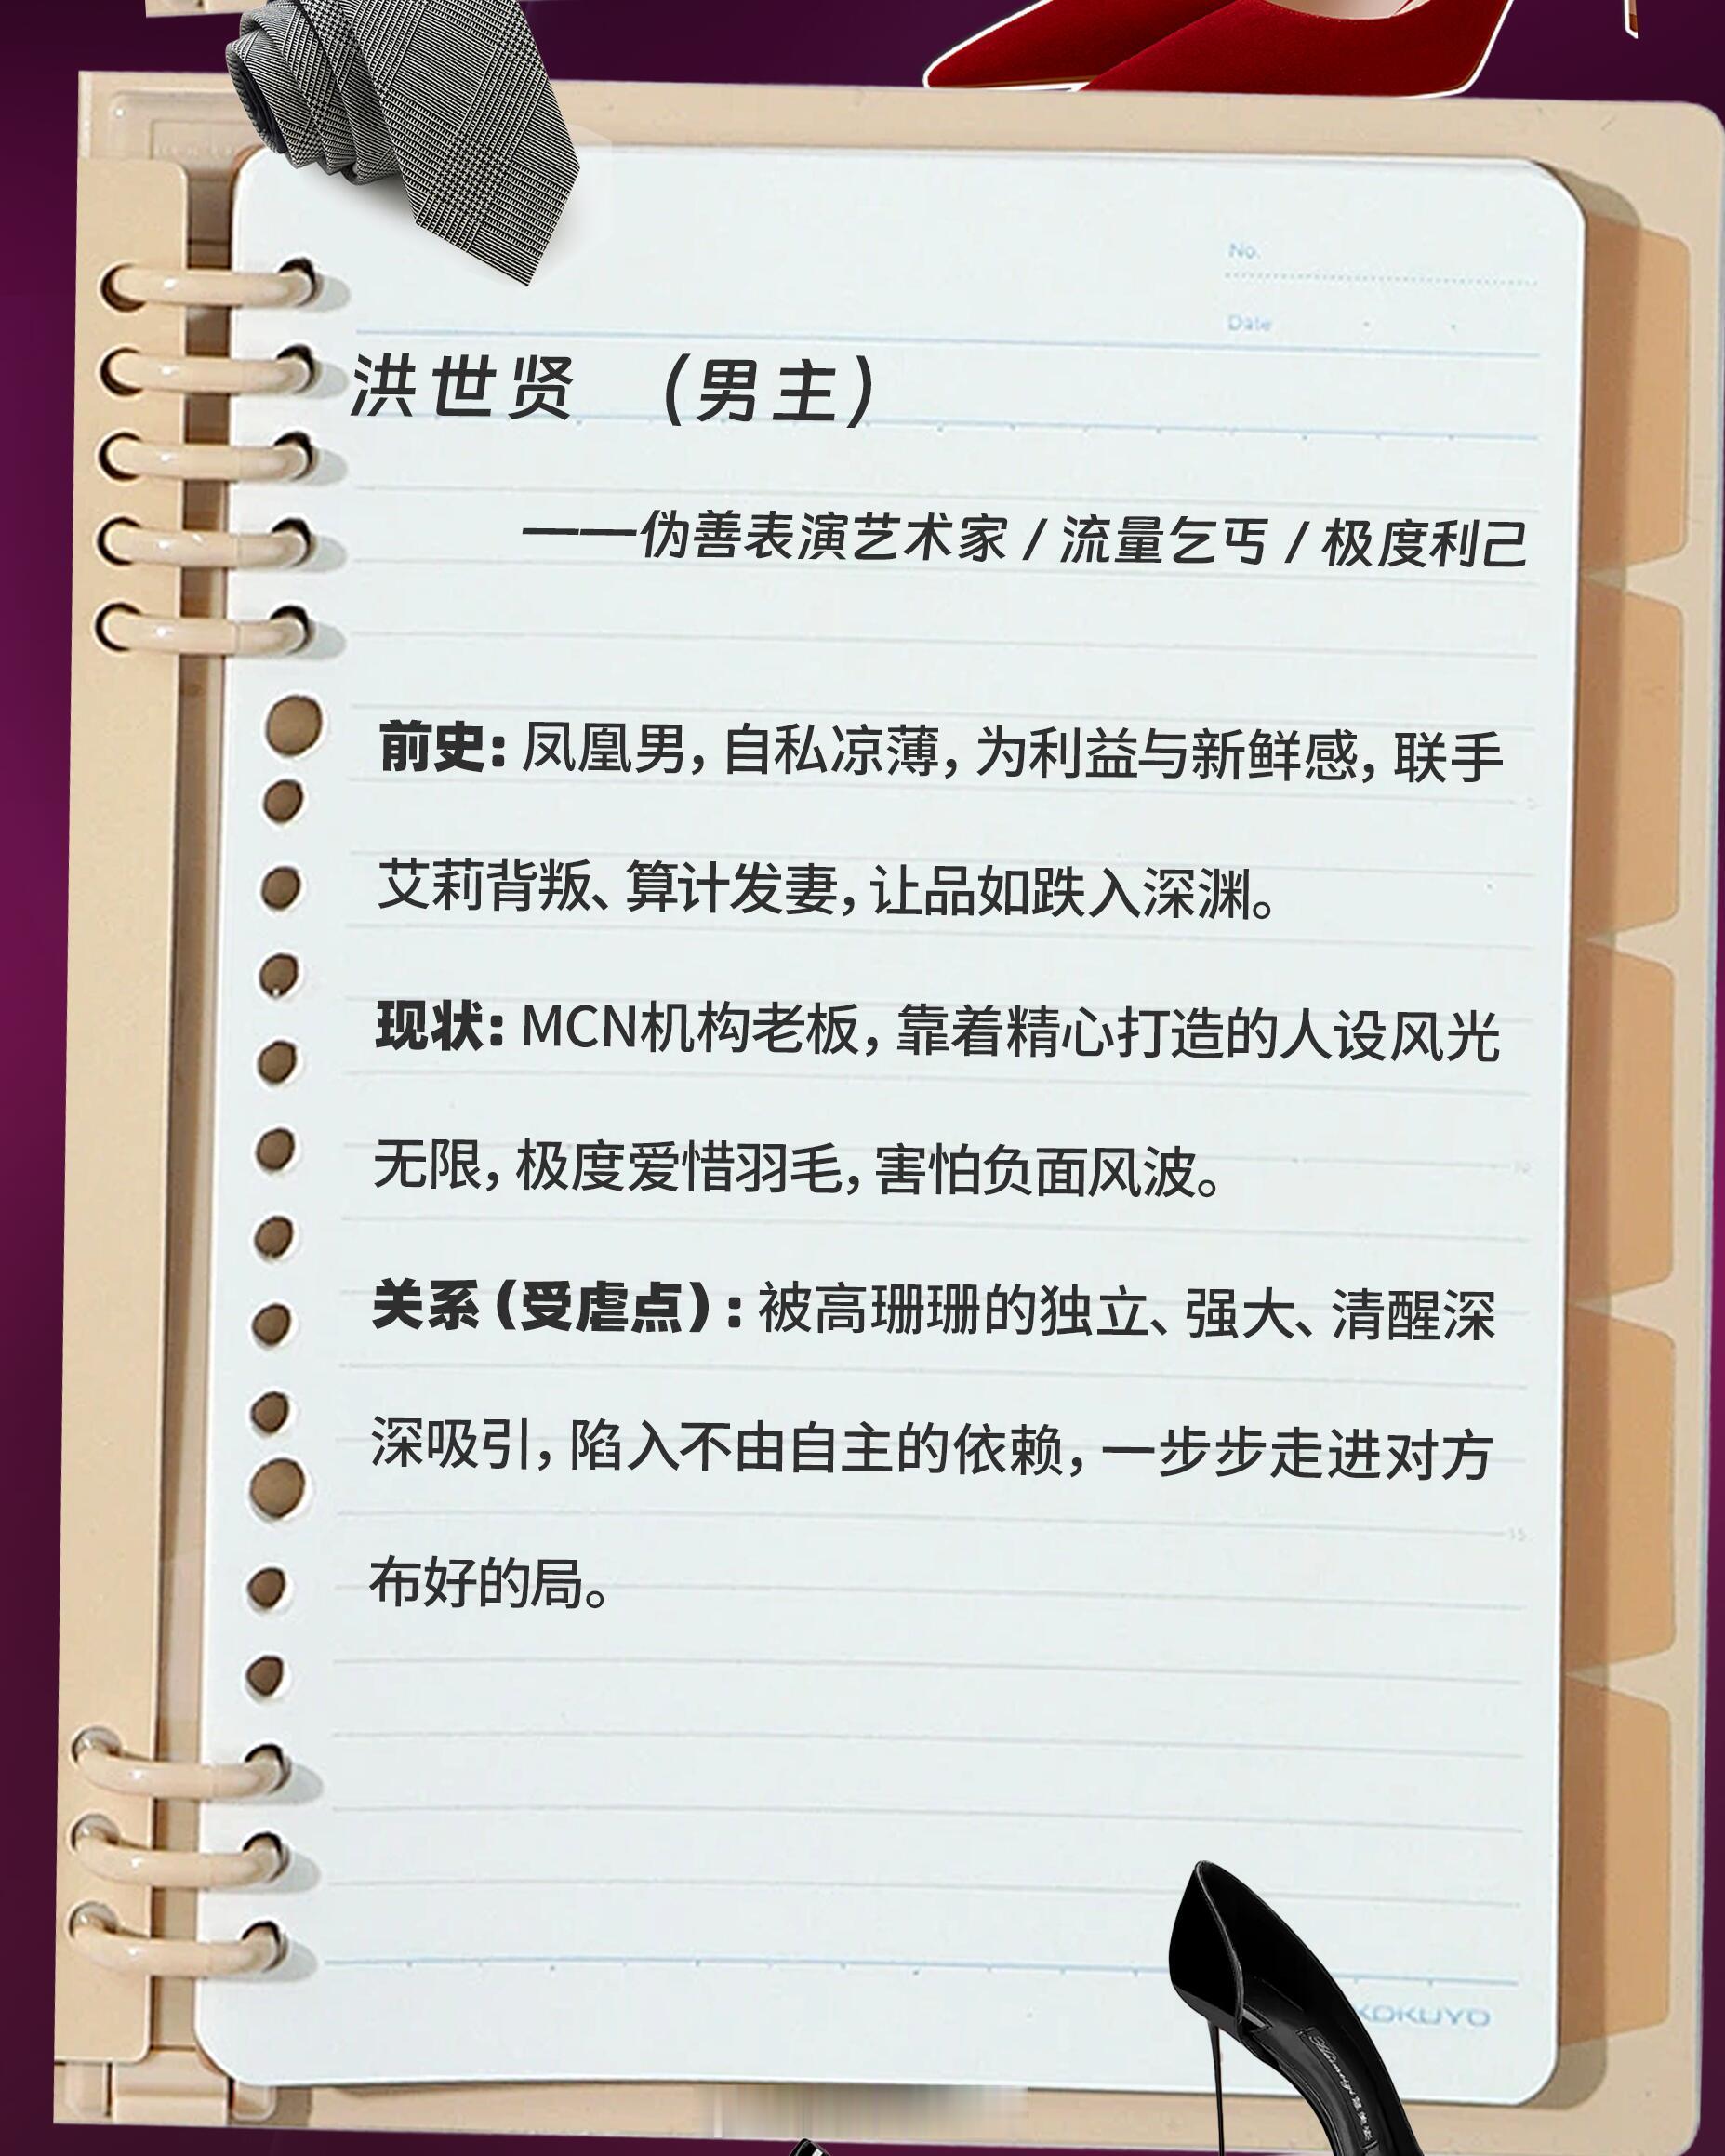 No.
Date
洪世贤 （男主）
——伪善表演艺术家 / 流量乞丐 / 极度利己
前史：凤凰男，自私凉薄，为利益与新鲜感，联手
艾莉背叛、算计发妻，让品如跌入深渊。
现状：MCN机构老板，靠着精心打造的人设风光
无限，极度爱惜羽毛，害怕负面风波。
关系（受虐点）：被高珊珊的独立、强大、清醒深
深吸引，陷入不由自主的依赖，一步步走进对方
布好的局。
KOKUYO